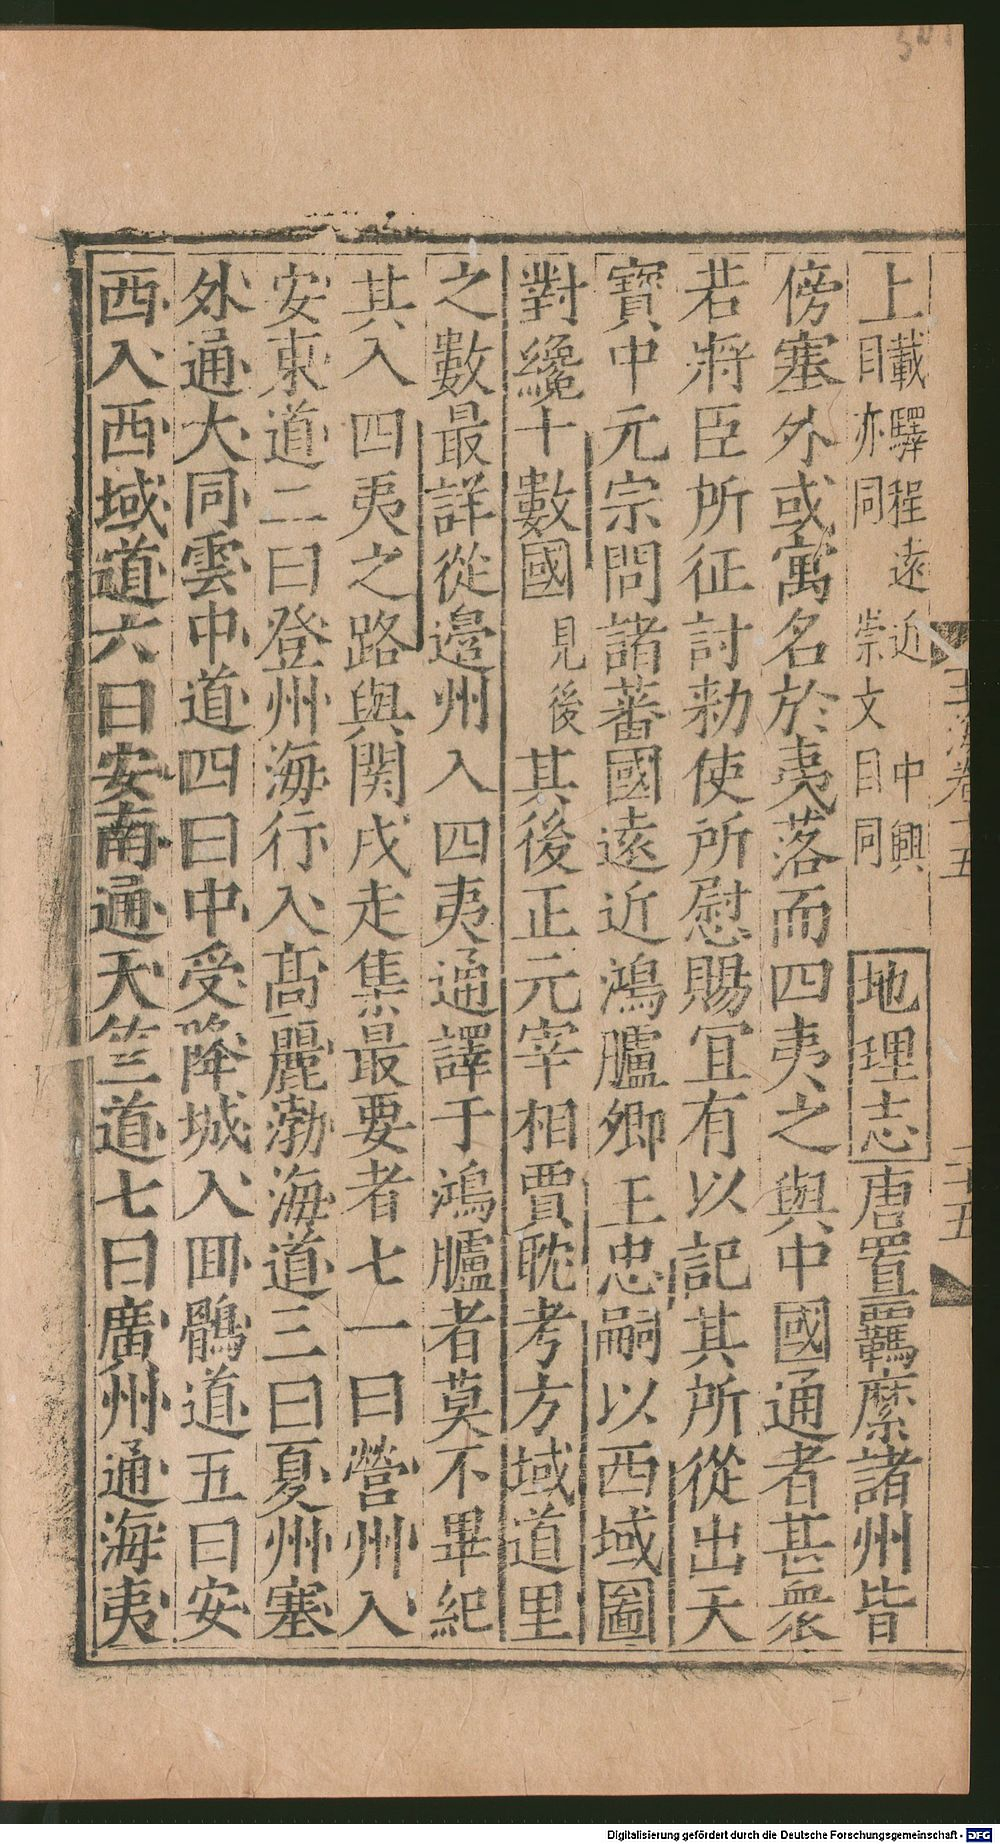 上載驛程遠近 中興
目亦同 崇文目同 地理志唐置羈縻諸州皆
傍塞外或寓名於夷落而四夷之與中國通者甚衆
若將臣所征討勑使所慰賜宜有以記其所從出天
寶中元宗問諸蕃國遠近鴻臚卿王忠嗣以西域圖
對纔十數國見後其後正元宰相賈耽考方域道里
之數最詳從邊州入四夷通譯于鴻臚者莫不畢紀
其入四夷之路與関戍走集最要者七一曰營州入
安東道二曰登州海行入髙麗渤海道三曰夏州塞
外通大同雲中道四曰中受降城入囬鶻道五曰安
西入西域道六曰安南通天竺道七曰廣州通海夷
玉海卷二五
二十五
Digitalisierung gefördert durch die Deutsche Forschungsgemeinschaft - DFG